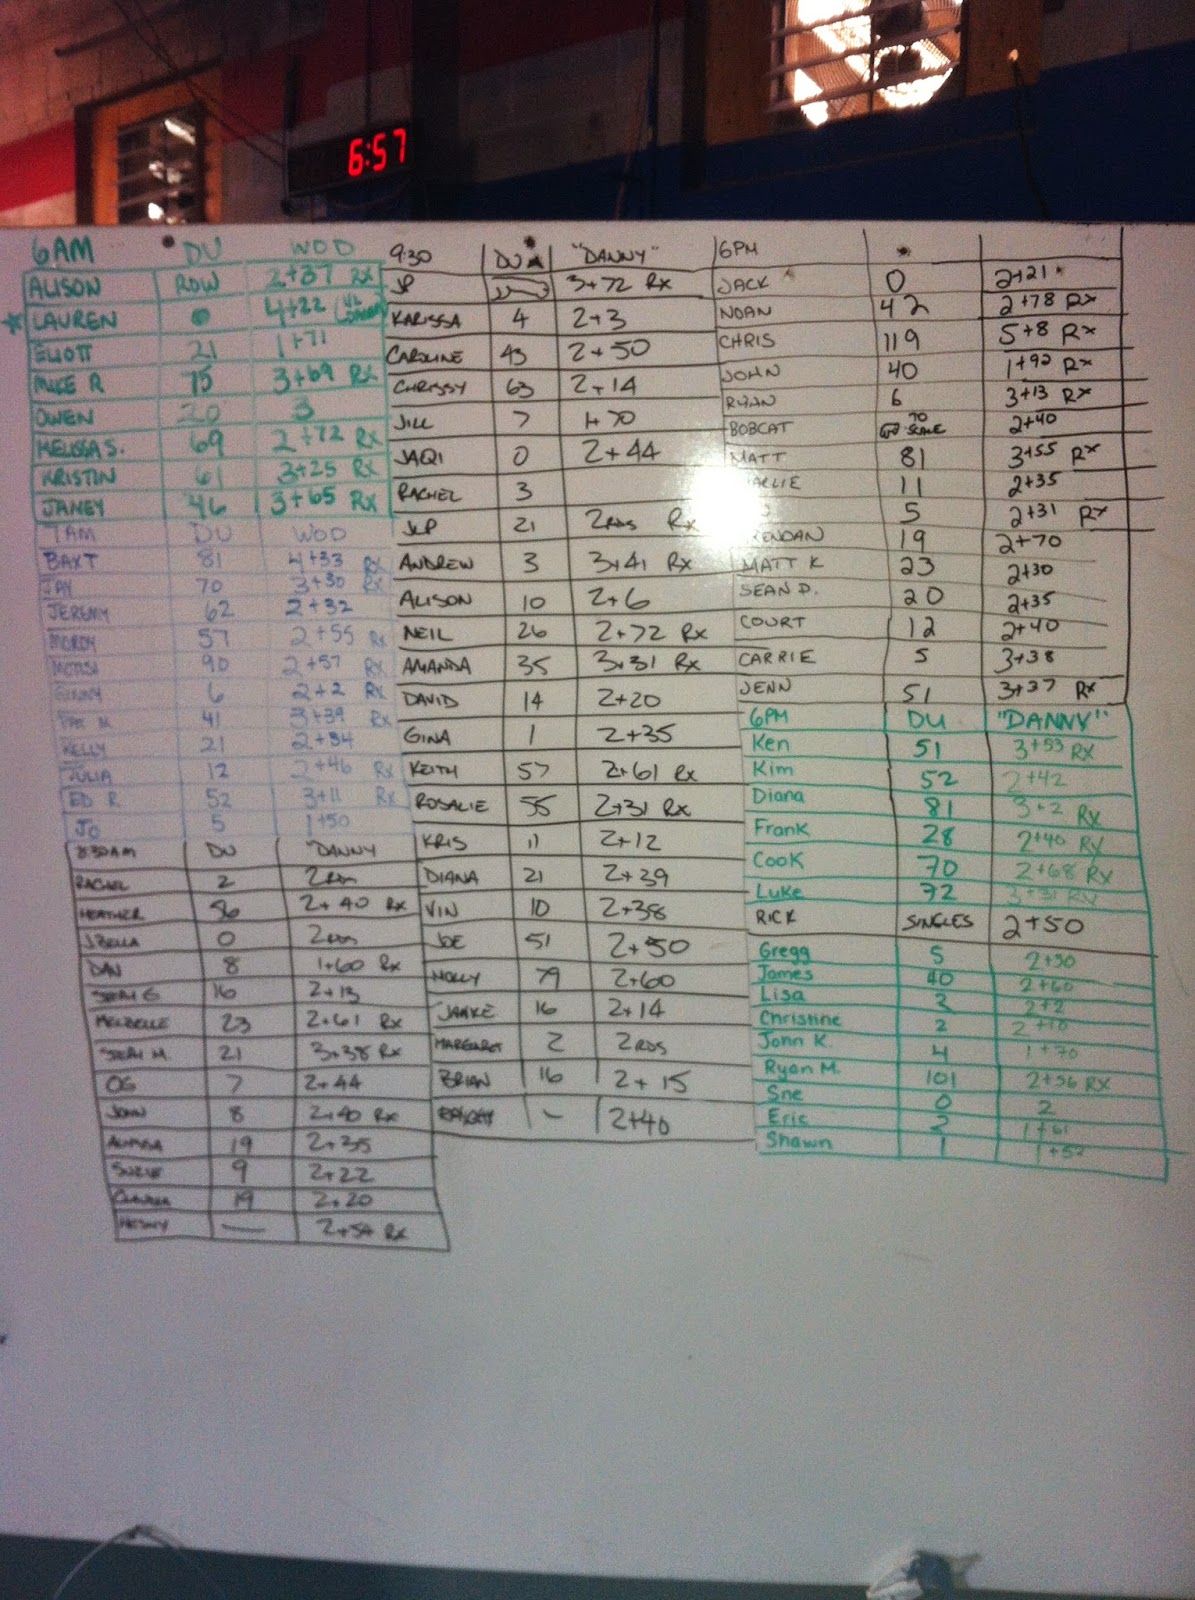 6:57
6AM DU WOD
ALISON ROW 2+37 Rx
LAUREN 0 4+22
ELIOTT 21 1+71
MIKE R 15 3+69 Rx
OWEN 20 3
MELISSA S. 69 2+72 Rx
KRISTIN 61 3+25 Rx
JANEY 46 3+65 Rx
7AM DU WOD
BAXT 81 4+33 Rx
JAY 70 3+30 Rx
JEREMY 62 2+32
MORDY 57 2+55 Rx
90 2+57 Rx
6 2+2 Rx
41 3+39 Rx
KELLY 21 2+34
JULIA 12 2+46 Rx
ED R. 52 3+11 Rx
JO 5 1+50
8:30AM DU "DANNY
RACHEL 2 2RDS
HEATHER 56 2+40 Rx
J.BELLA 0 2RDS
DAN 8 1+60 Rx
16 2+13
MELBELLE 23 2+61 Rx
SEAN M. 21 3+38 Rx
OG 7 2+44
JOHN 8 2+40 Rx
19 2+35
SUZIE 9 2+22
19 2+20
— 2+54 Rx
9:30 DU "DANNY"
JP 3+72 Rx
KARISSA 4 2+3
CAROLINE 43 2+50
CHRISSY 63 2+14
JILL 7 1+70
JAQI 0 2+44
RACHEL 3
21 2RDS Rx
ANDREW 3 3+41 Rx
ALISON 10 2+6
NEIL 26 2+72 Rx
AMANDA 35 3+31 Rx
DAVID 14 2+20
GINA 1 2+35
KEITH 57 2+61 Rx
ROSALIE 55 2+31 Rx
KRIS 11 2+12
DIANA 21 2+39
VIN 10 2+38
JOE 51 2+50
HOLLY 79 2+60
16 2+14
MARGARET 2 2RDS
BRIAN 16 2+15
— 2+40
6PM
JACK 0 2+21
NOAN 42 2+78 Rx
CHRIS 119 5+8 Rx
JOHN 40 1+92 Rx
RYAN 6 3+13 Rx
BOBCAT 70 SCALE 2+40
MATT 81 3+55 Rx
11 2+35
5 2+31 Rx
19 2+70
MATT K 23 2+30
SEAN D. 20 2+35
COURT 12 2+40
CARRIE 5 3+38
JENN 51 3+37 Rx
6PM DU "DANNY"
Ken 51 3+53 Rx
Kim 52 2+42
Diana 81 3+2 Rx
Frank 28 2+40 Rx
Cook 70 2+68 Rx
Luke 72 3+31 Rx
RICK SINGLES 2+50
Gregg 5 2+30
James 40 2+60
Lisa 2 2+2
Christine 2 2+10
John K. 4 1+70
Ryan M. 101 2+56 Rx
Sne 0 2
Eric 2 1+61
Shawn 1 1+52